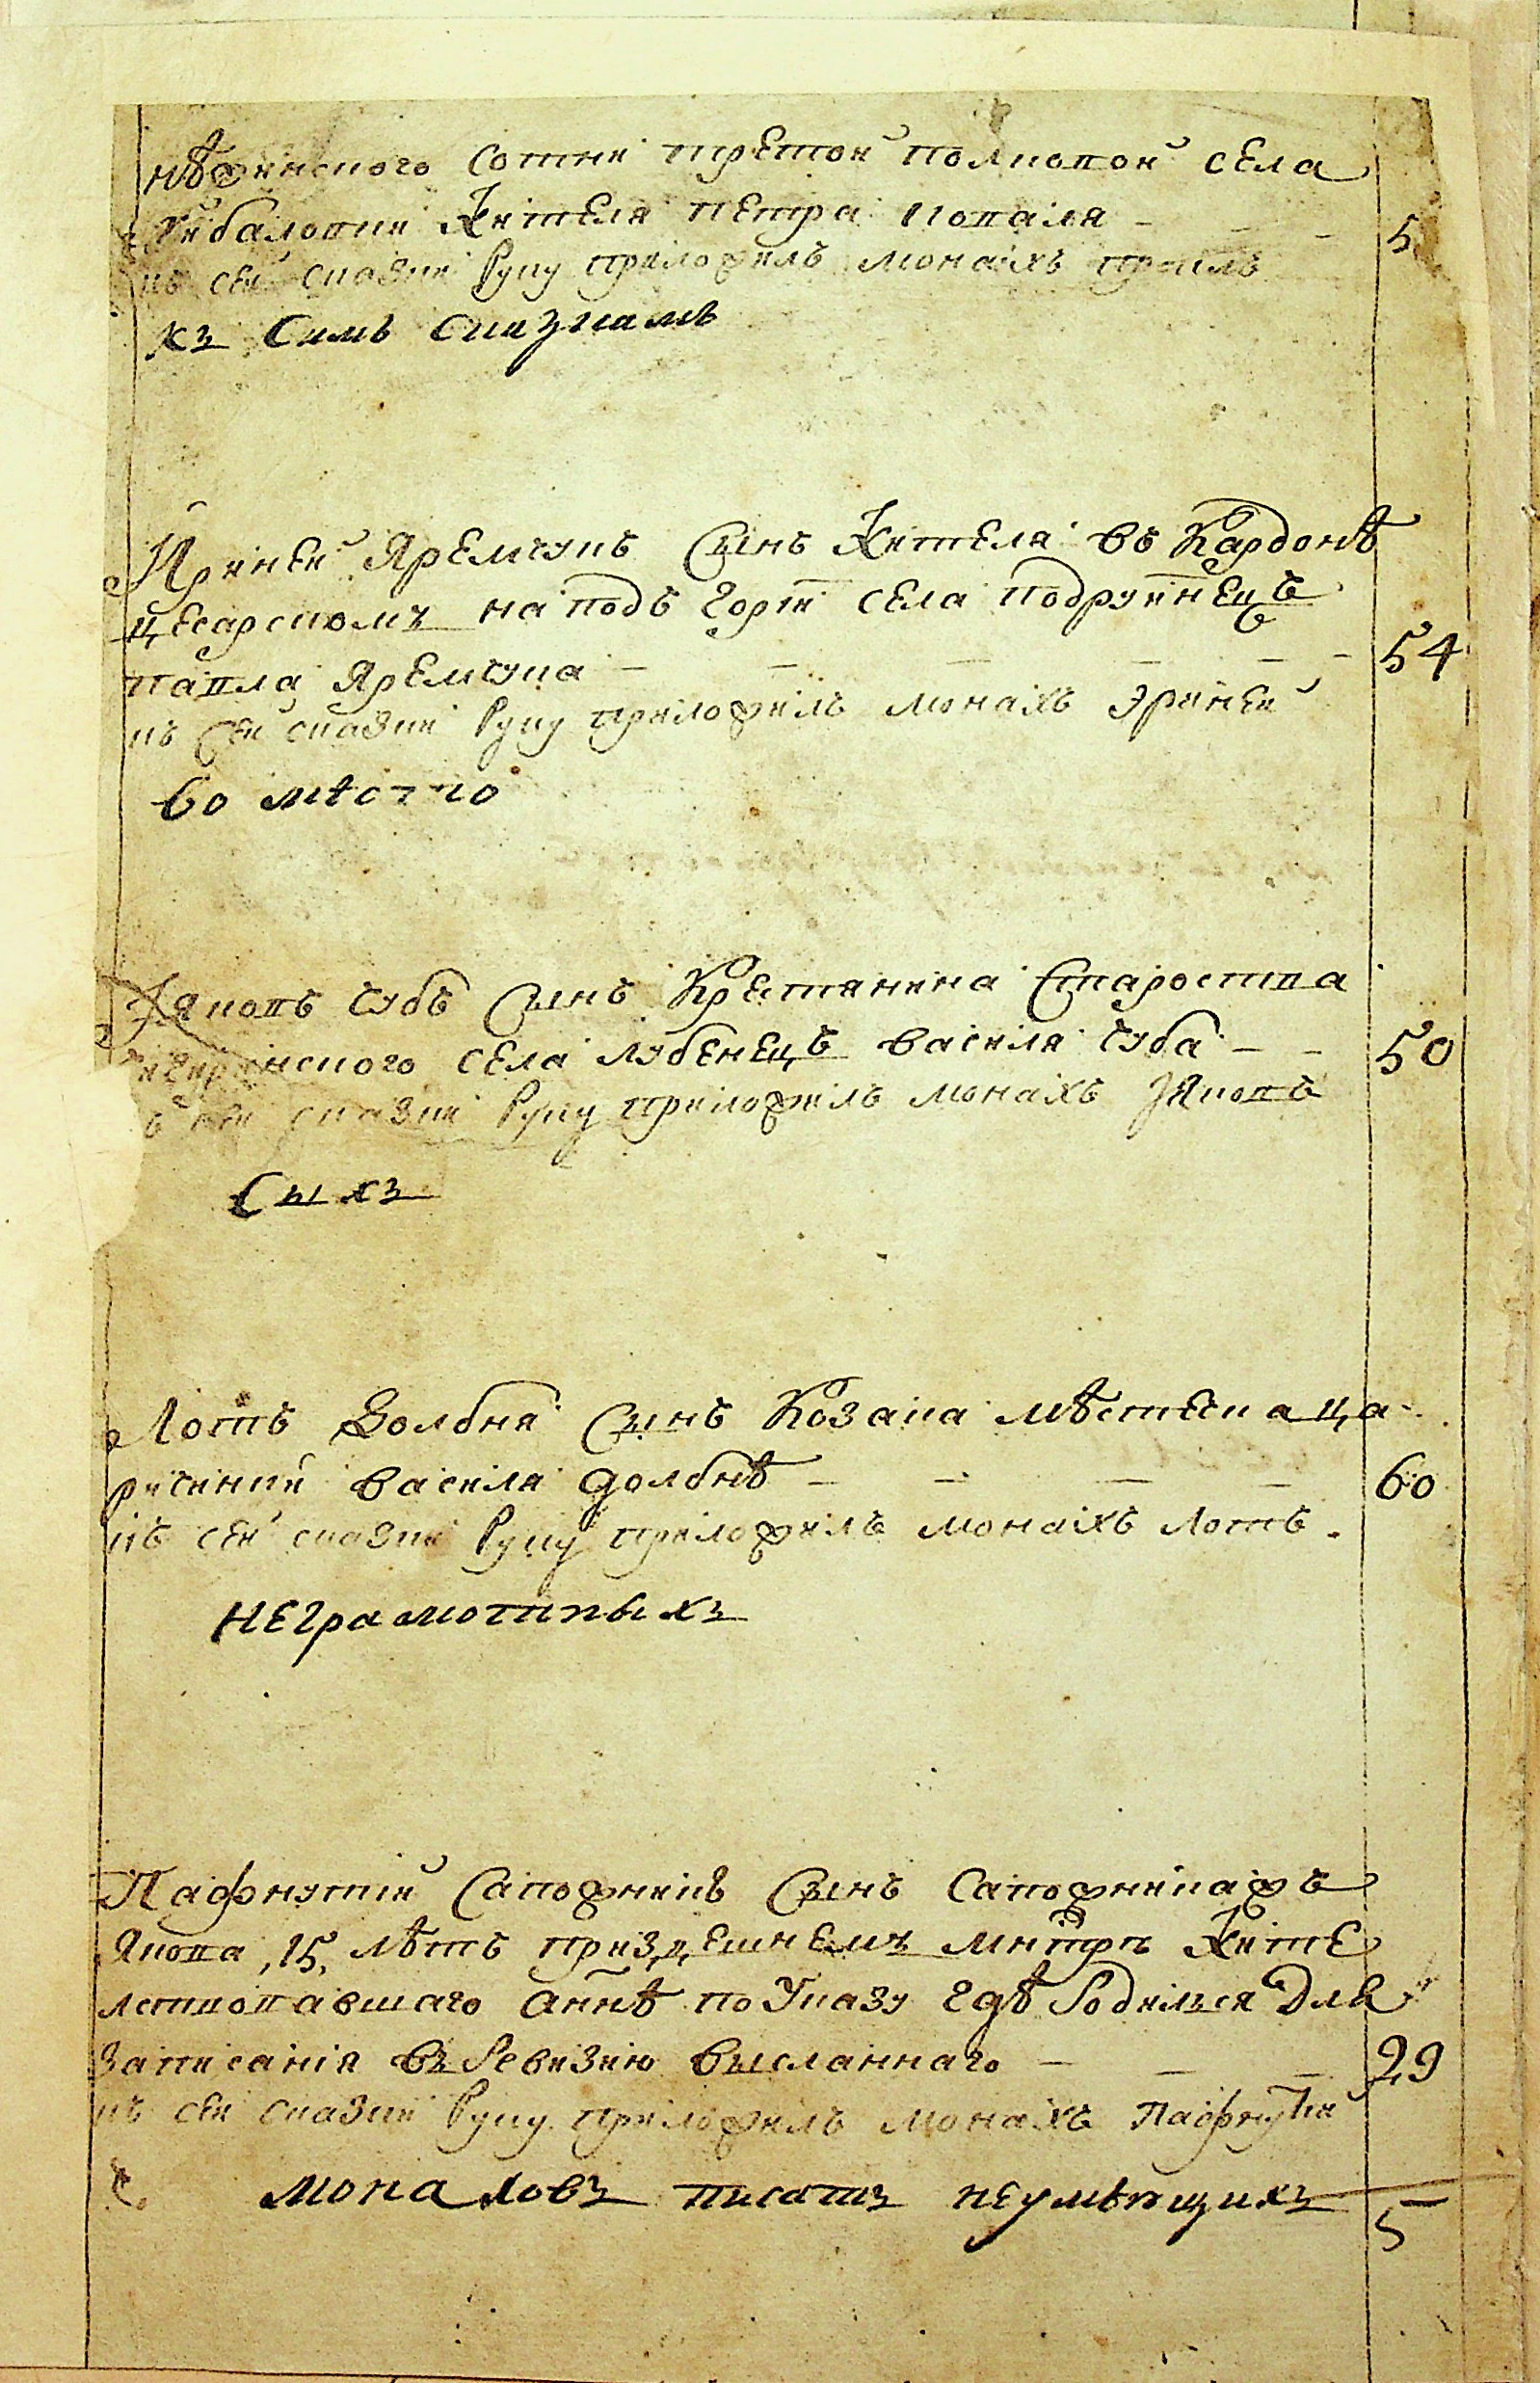 нѣжинского сотни третой полковой села
Кибаловки Жителя петра коваля 5
къ сей сказки Руку приложилъ монахъ
къ симъ сказкамъ
Ириней Яремчукъ Сынъ Жителя въ Кардонѣ
цесарскомъ на подъ горѣи села подруйнецъ
павла Яремчука 54
къ сей сказки Руку приложилъ монахъ Эриней
во мѣсто
Іяковъ Чубъ Сынъ Крестянина Староства
чигиринского села лубенецъ василя чуба 50
ъ сей сказки Руку приложилъ монахъ Іяковъ
сихъ
Лотъ Долбня Сынъ Козака мѣстечка ца
ричинки василя долбнѣ 60
къ сей сказки Руку приложилъ монахъ Лотъ.
неграмотныхъ
Пафнутій Сапожникъ Сынъ Сапожникахъ
Якова ,15, лѣтъ при здешнемъ мнтрѣ Жите
лствовавшаго аннѣ по Указу гдѣ Родилься для
записанія въ Ревизию высланнаго 29
къ сей сказки Руку приложилъ монахъ Пафнутій
монаховъ писать неумѣющихъ 5